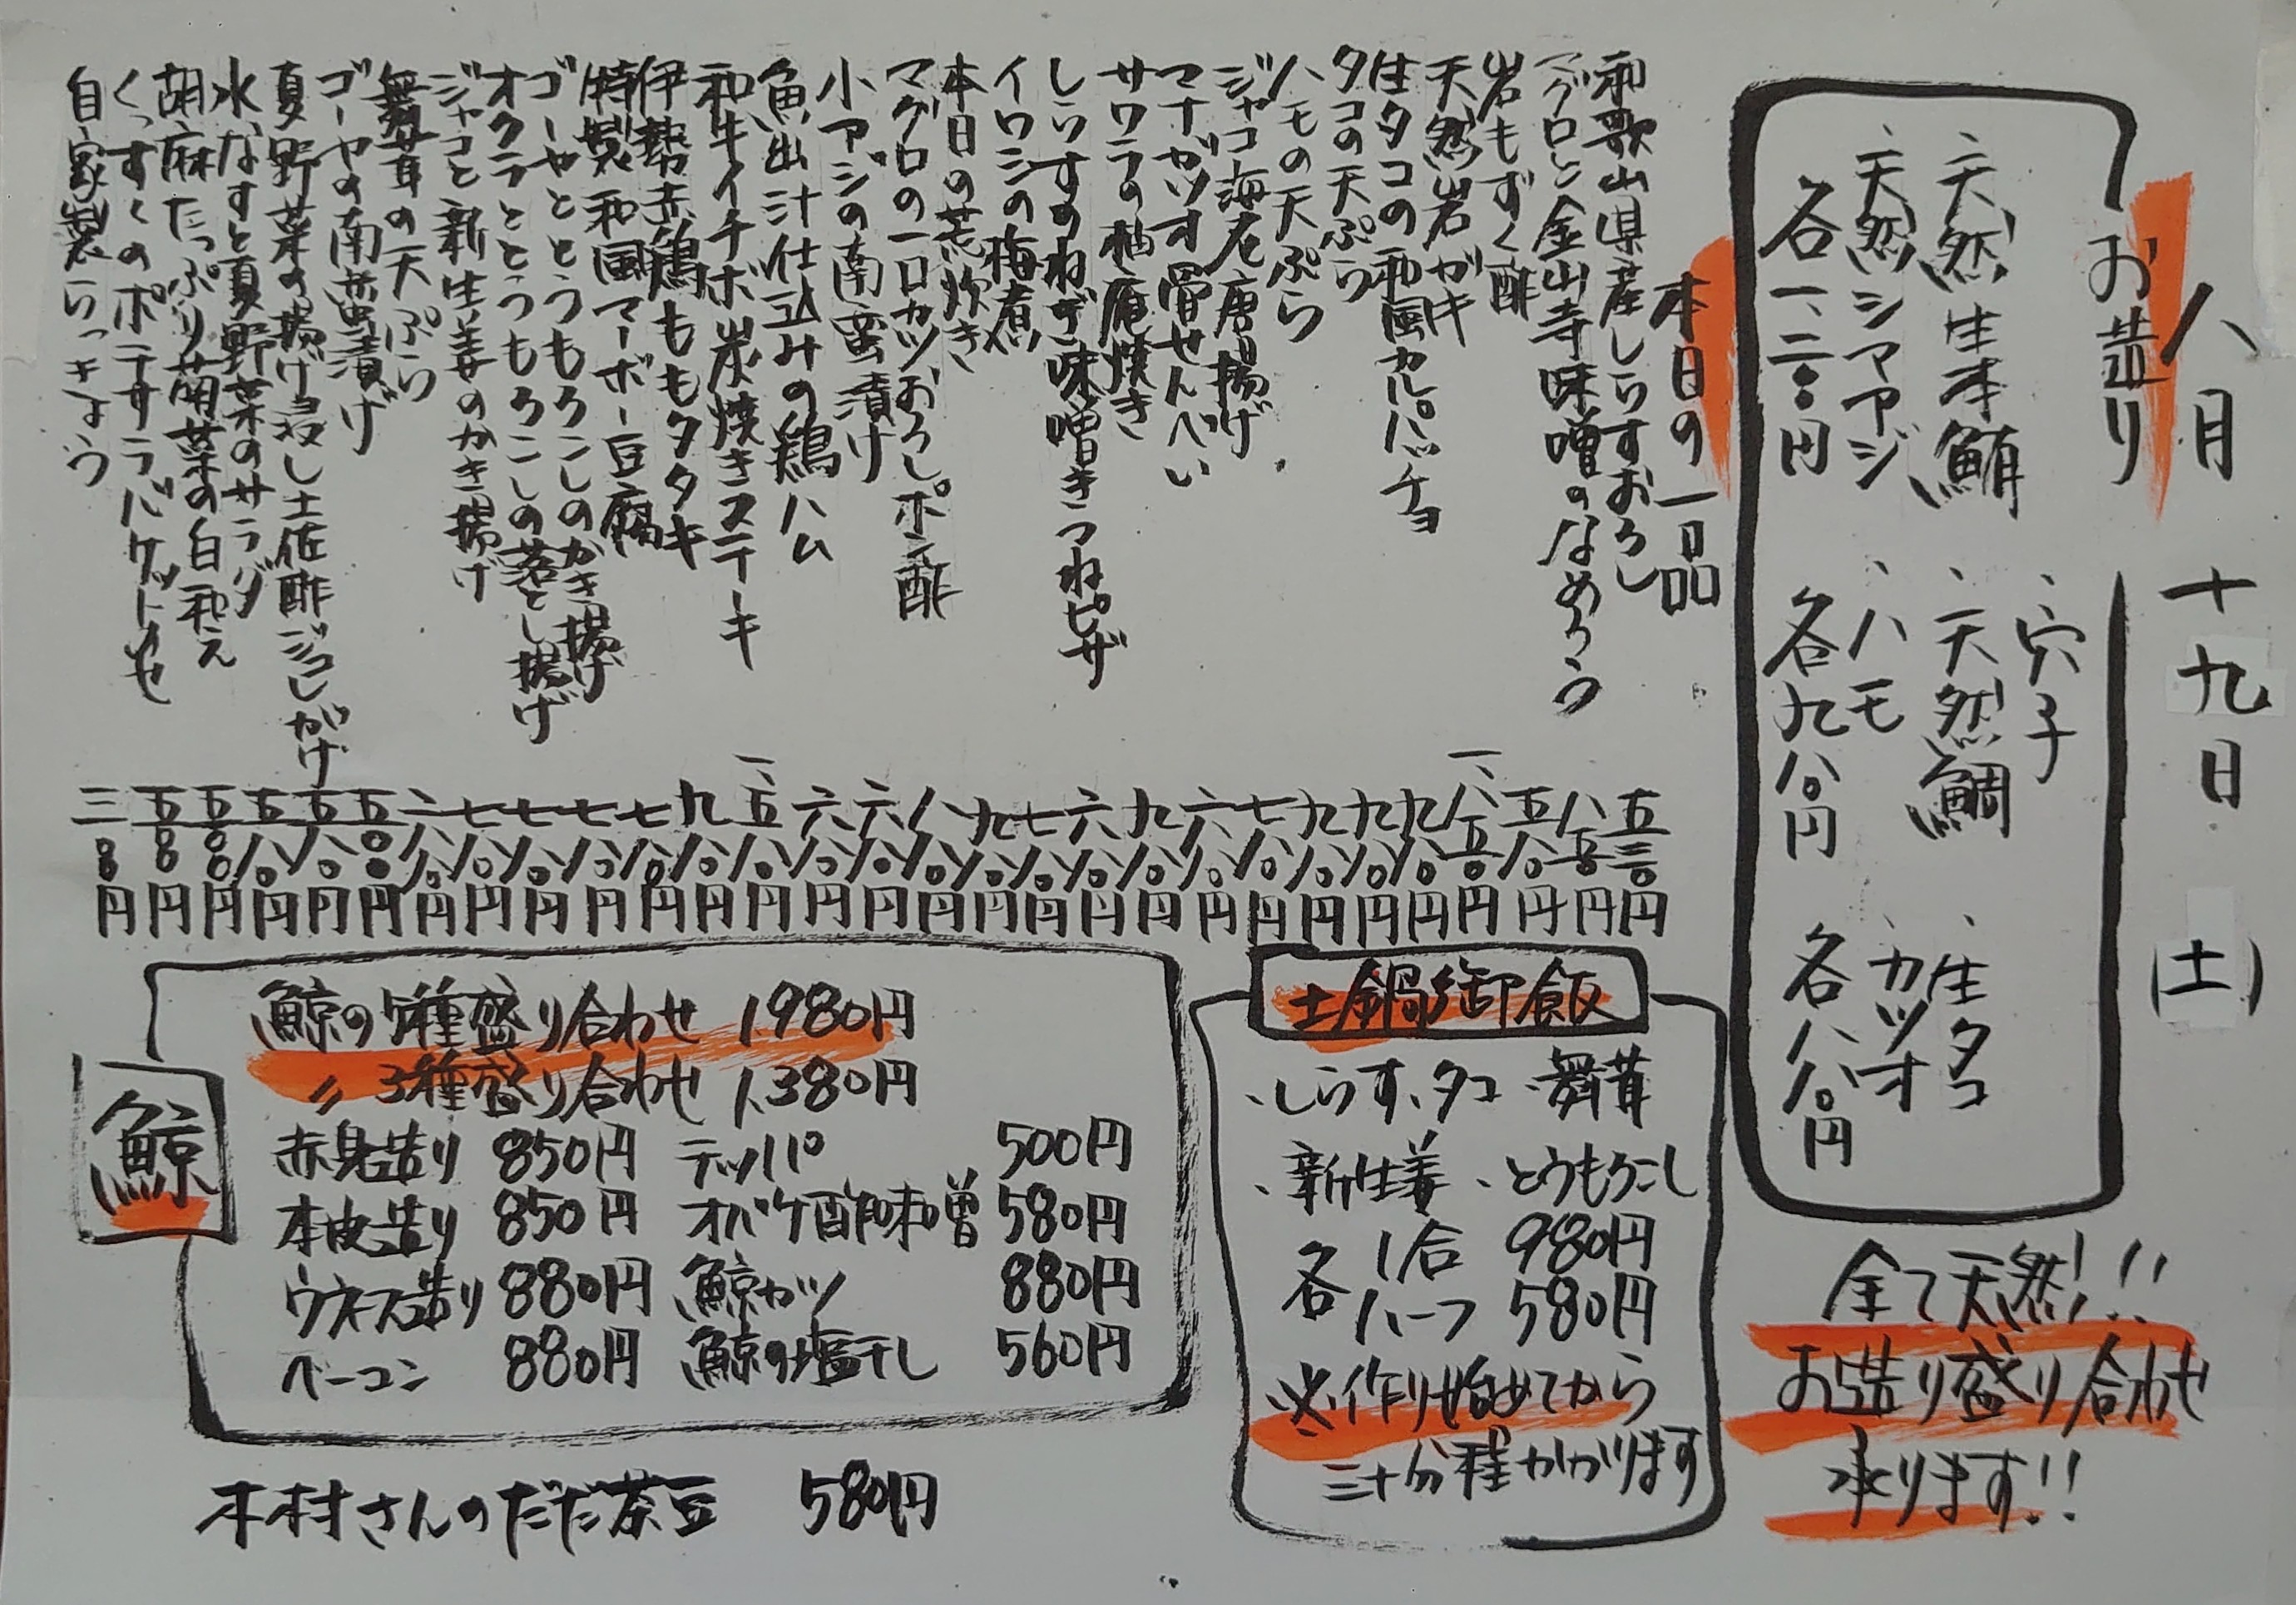 八月 十九日 (土)
お造り
、天然生本鮪
、天然シマアジ
各一、二八〇円
、穴子
、天然鯛
、ハモ
各九八〇円
、生タコ
、カツオ
各八八〇円
全て天然!!
お造り盛り合わせ
承ります!!
本日の一品
和歌山県産しらすおろし 五三〇円
マグロと金山寺味噌のなめろう 八五〇円
岩もずく酢 五八〇円
天然岩ガキ 一、八五〇円
生タコの和風カルパッチョ 九八〇円
タコの天ぷら 九八〇円
ハモの天ぷら 九八〇円
ジャコ海老唐揚げ 七八〇円
マナガツオ骨せんべい 六八〇円
サワラの柚庵焼き 九八〇円
しらすのねぎ味噌きつねピザ 六八〇円
イワシの梅煮 七八〇円
本日の荒炊き 九八〇円
マグロの一口カツおろしポン酢 八八〇円
小アジの南蛮漬け 六八〇円
魚出汁仕込みの鶏ハム 六八〇円
和牛イチボ炭焼きステーキ 一、五八〇円
伊勢赤鶏ももタタキ 九八〇円
特製和風マーボー豆腐 七八〇円
ゴーヤととうもろこしのかき揚げ 七八〇円
オクラととうもろこしの落とし揚げ 七八〇円
ジャコと新生姜のかき揚げ 七八〇円
舞茸の天ぷら 六八〇円
ゴーヤの南蛮漬け 五〇〇円
夏野菜の揚げ浸し土佐酢ジュレがけ 五八〇円
水なすと夏野菜のサラダ 五八〇円
胡麻たっぷり菊菜の白和え 五〇〇円
くっすくのポテサラバケットのせ 五〇〇円
自家製らっきょう 三〇〇円
土鍋御飯
、しらす、タコ、舞茸
、新生姜、とうもろこし
各 1合 980円
ハーフ 580円
※作り始めてから
三十分程かかります
鯨
鯨の5種盛り合わせ 1,980円
〃 3種盛り合わせ 1,380円
赤身造り 850円 テッパ 500円
本皮造り 850円 オバケ酢味噌 580円
ウネス造り 880円 鯨カツ 880円
ベーコン 880円 鯨の塩干し 560円
木村さんのだだ茶豆 580円